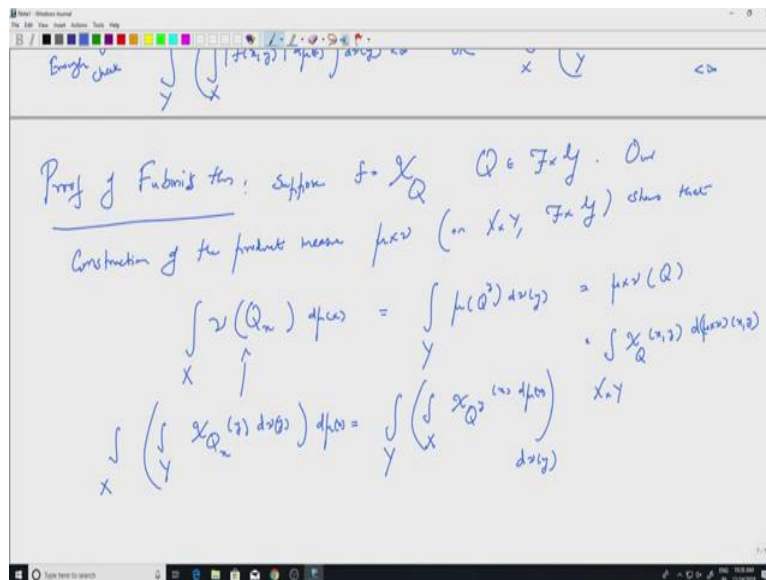 Note1 - Windows Journal
File Edit View Insert Actions Tools Help
Enough check ∫_Y ( ∫_X |f(x,y)| dμ(x) ) dν(y) < ∞ or X ( Y < ∞
Proof of Fubini's thm: Suppose f = χ_Q Q ∈ F×G. Our
Construction of the product measure μ×ν (on X×Y, F×G) shows that
∫_X ν(Q_x) dμ(x) = ∫_Y μ(Q^y) dν(y) = μ×ν(Q)
= ∫_{X×Y} χ_Q(x,y) d(μ×ν)(x,y)
∫_X ( ∫_Y χ_{Q_x}(y) dν(y) ) dμ(x) = ∫_Y ( ∫_X χ_{Q^y}(x) dμ(x) ) dν(y)
Type here to search